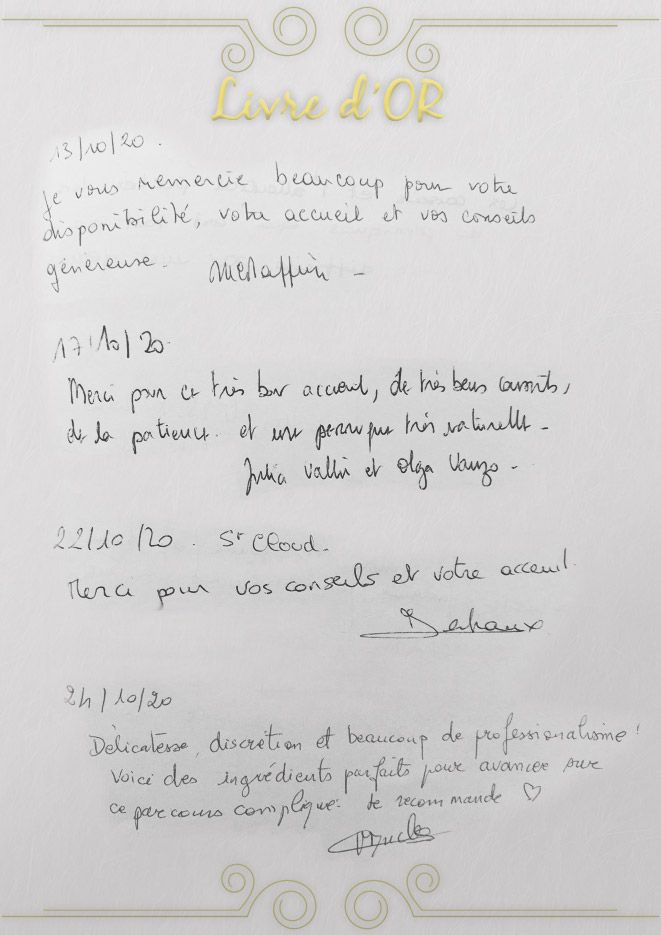 Livre d'OR
13/10/20.
Je vous remercie beaucoup pour votre
disponibilité, votre accueil et vos conseils
généreuse.
17/10/20.
Merci pour ce très bon accueil, de très bons conseils,
de la patience et une perruque très naturelle -
Julia Vallri et Olga
22/10/20. St Cloud.
Merci pour vos conseils et votre acceuil.
24/10/20
Délicatesse, discrétion et beaucoup de professionalisme!
Voici des ingrédients parfaits pour avancer sur
ce parcours compliqué. Je recommande ♡